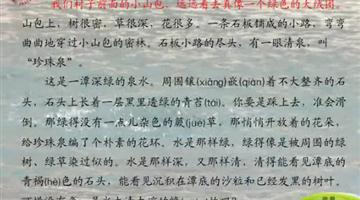 我们村子前面的小山包，远远看去真像一个绿色的大绒团。
山包上，树很密，草很深，花很多。一条石板铺成的小路，弯弯
曲曲地穿过小山包的密林。石板小路的尽头，有一眼清泉，叫
“珍珠泉”。
这是一潭深绿的泉水。周围镶(xiāng)嵌(qiàn)着不大整齐的石
头，石头上长着一层黑里透绿的青苔(tái)。你要是踩上去，准会滑
倒。那绿得没有一点儿杂色的蕨(jué)草，那悄悄开放着的花朵，
给珍珠泉编了个朴素的花环。水是那样绿，绿得像是被周围的绿
树、绿草染过似的。水是那样深，又那样清，清得能看见潭底的
青褐(hè)色的石头，能看见沉积在潭底的沙粒和已经发黑的树叶。